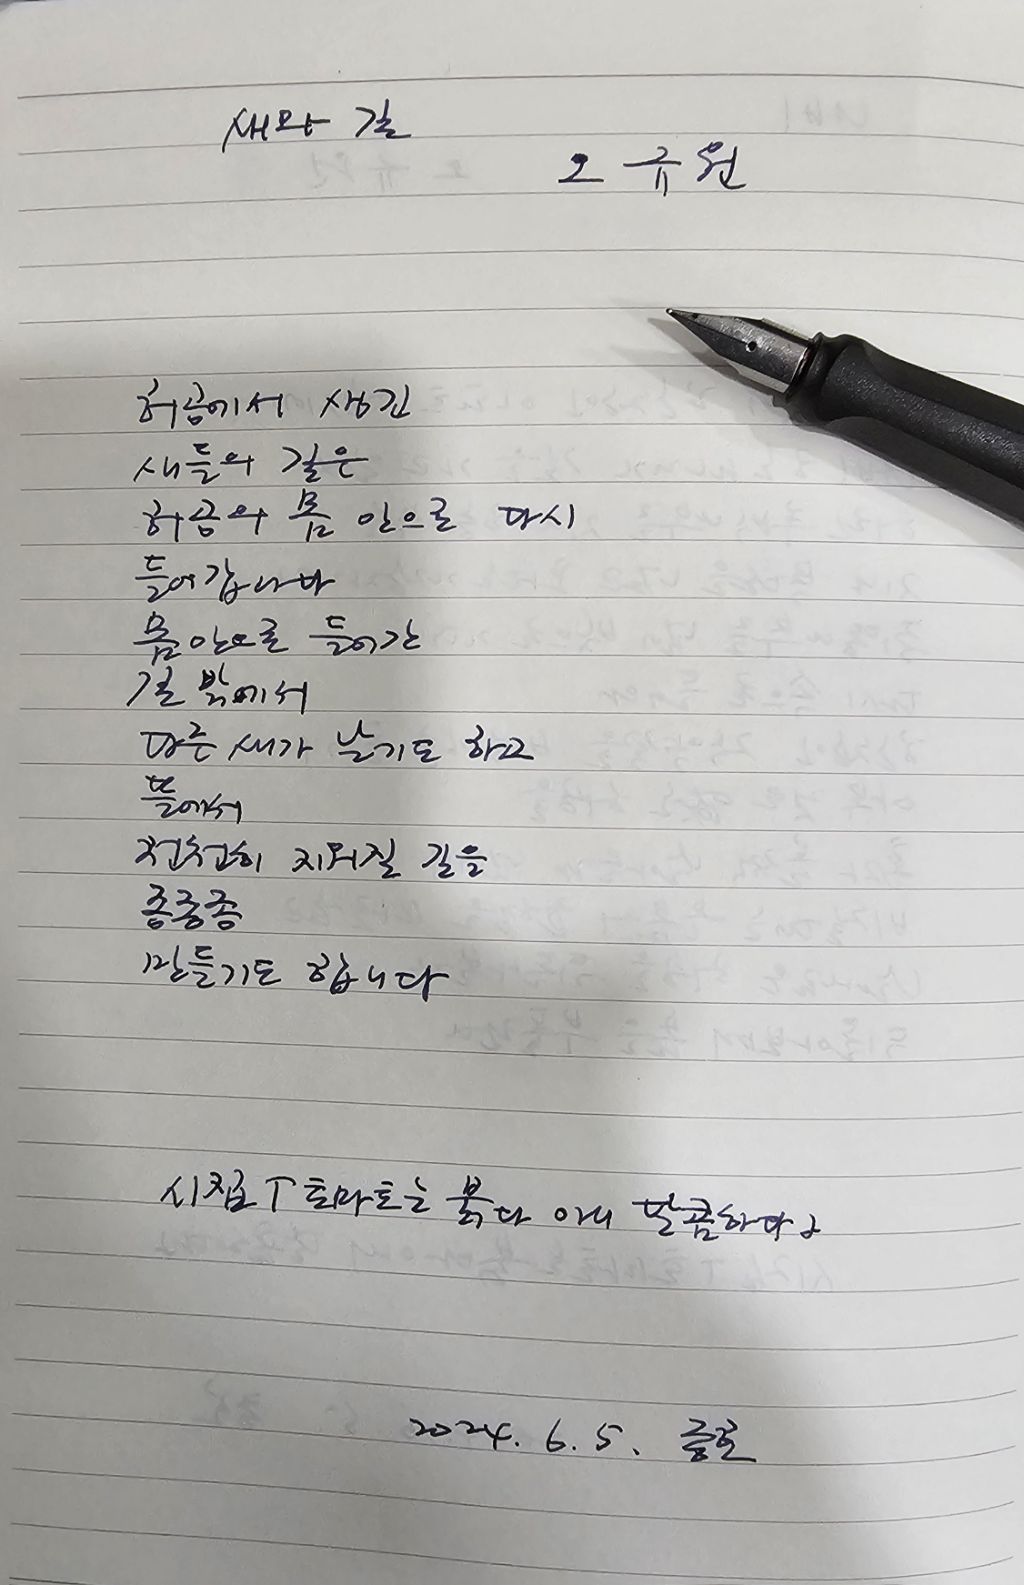 새와 길
오규원
허공에서 생긴
새들의 길은
허공의 몸 안으로 다시
들어갑니다
몸 안으로 들어간
길 밖에서
다른 새가 날기도 하고
뜰에서
천천히 지워질 길을
종종종
만들기도 합니다
시집 「토마토는 붉다 아니 달콤하다」
2024. 6. 5.